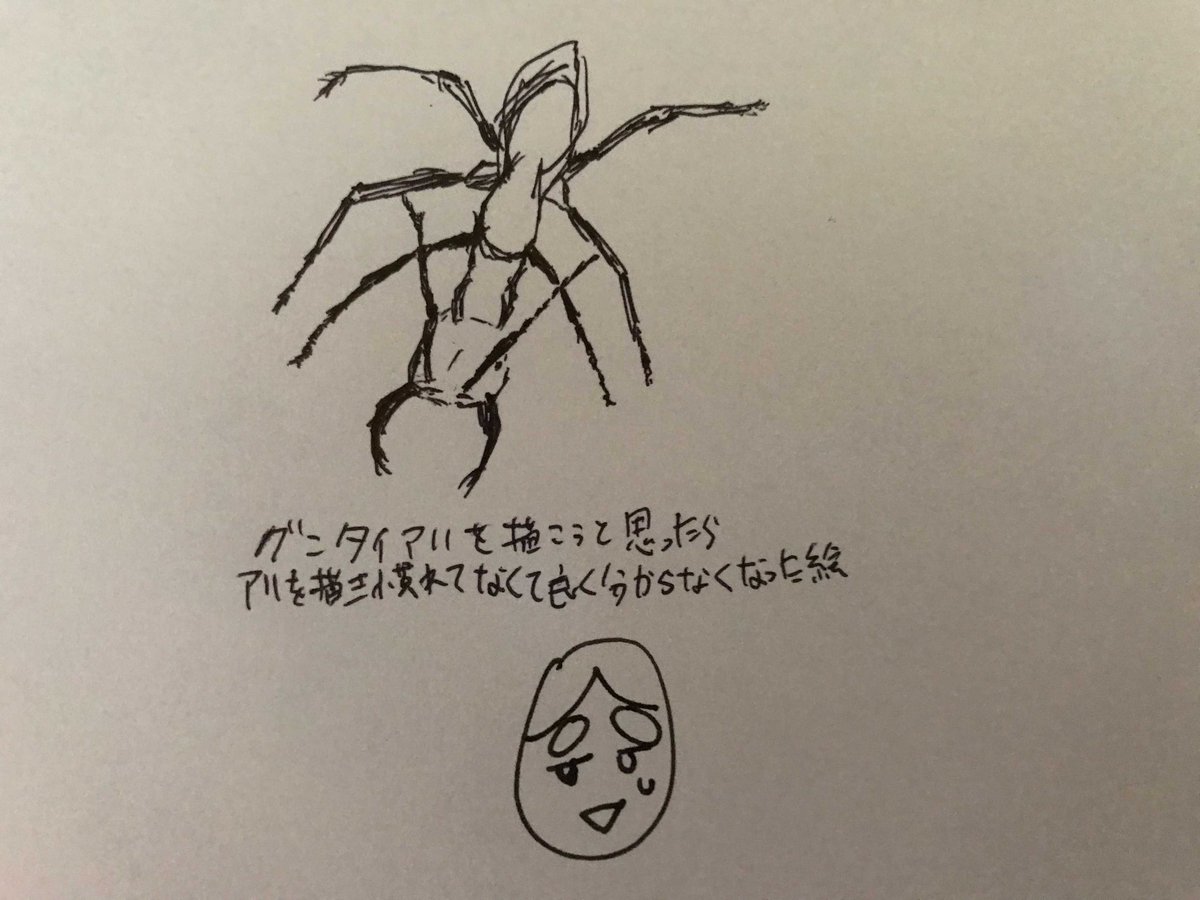 グンタイアリを描こうと思ったら
アリを描き慣れてなくて良く分からなくなった絵